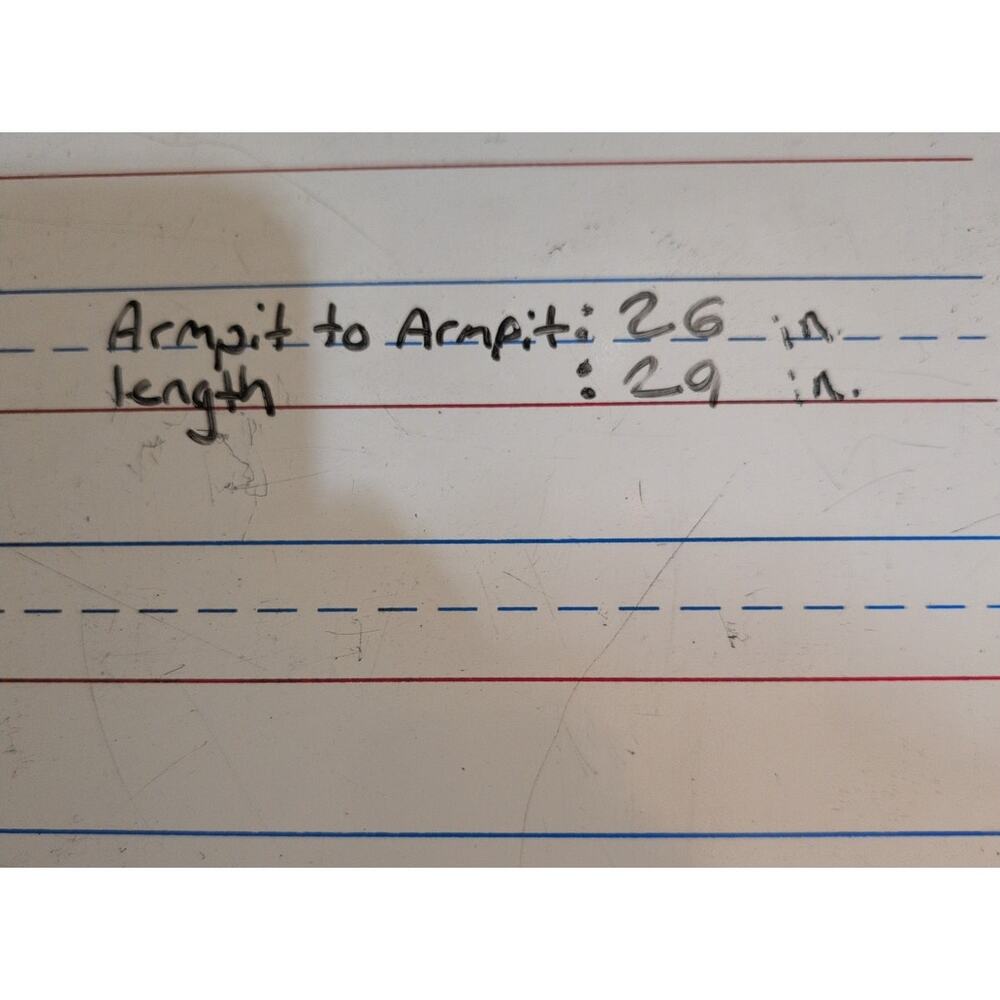 Armpit to Armpit: 26 in.
length : 29 in.